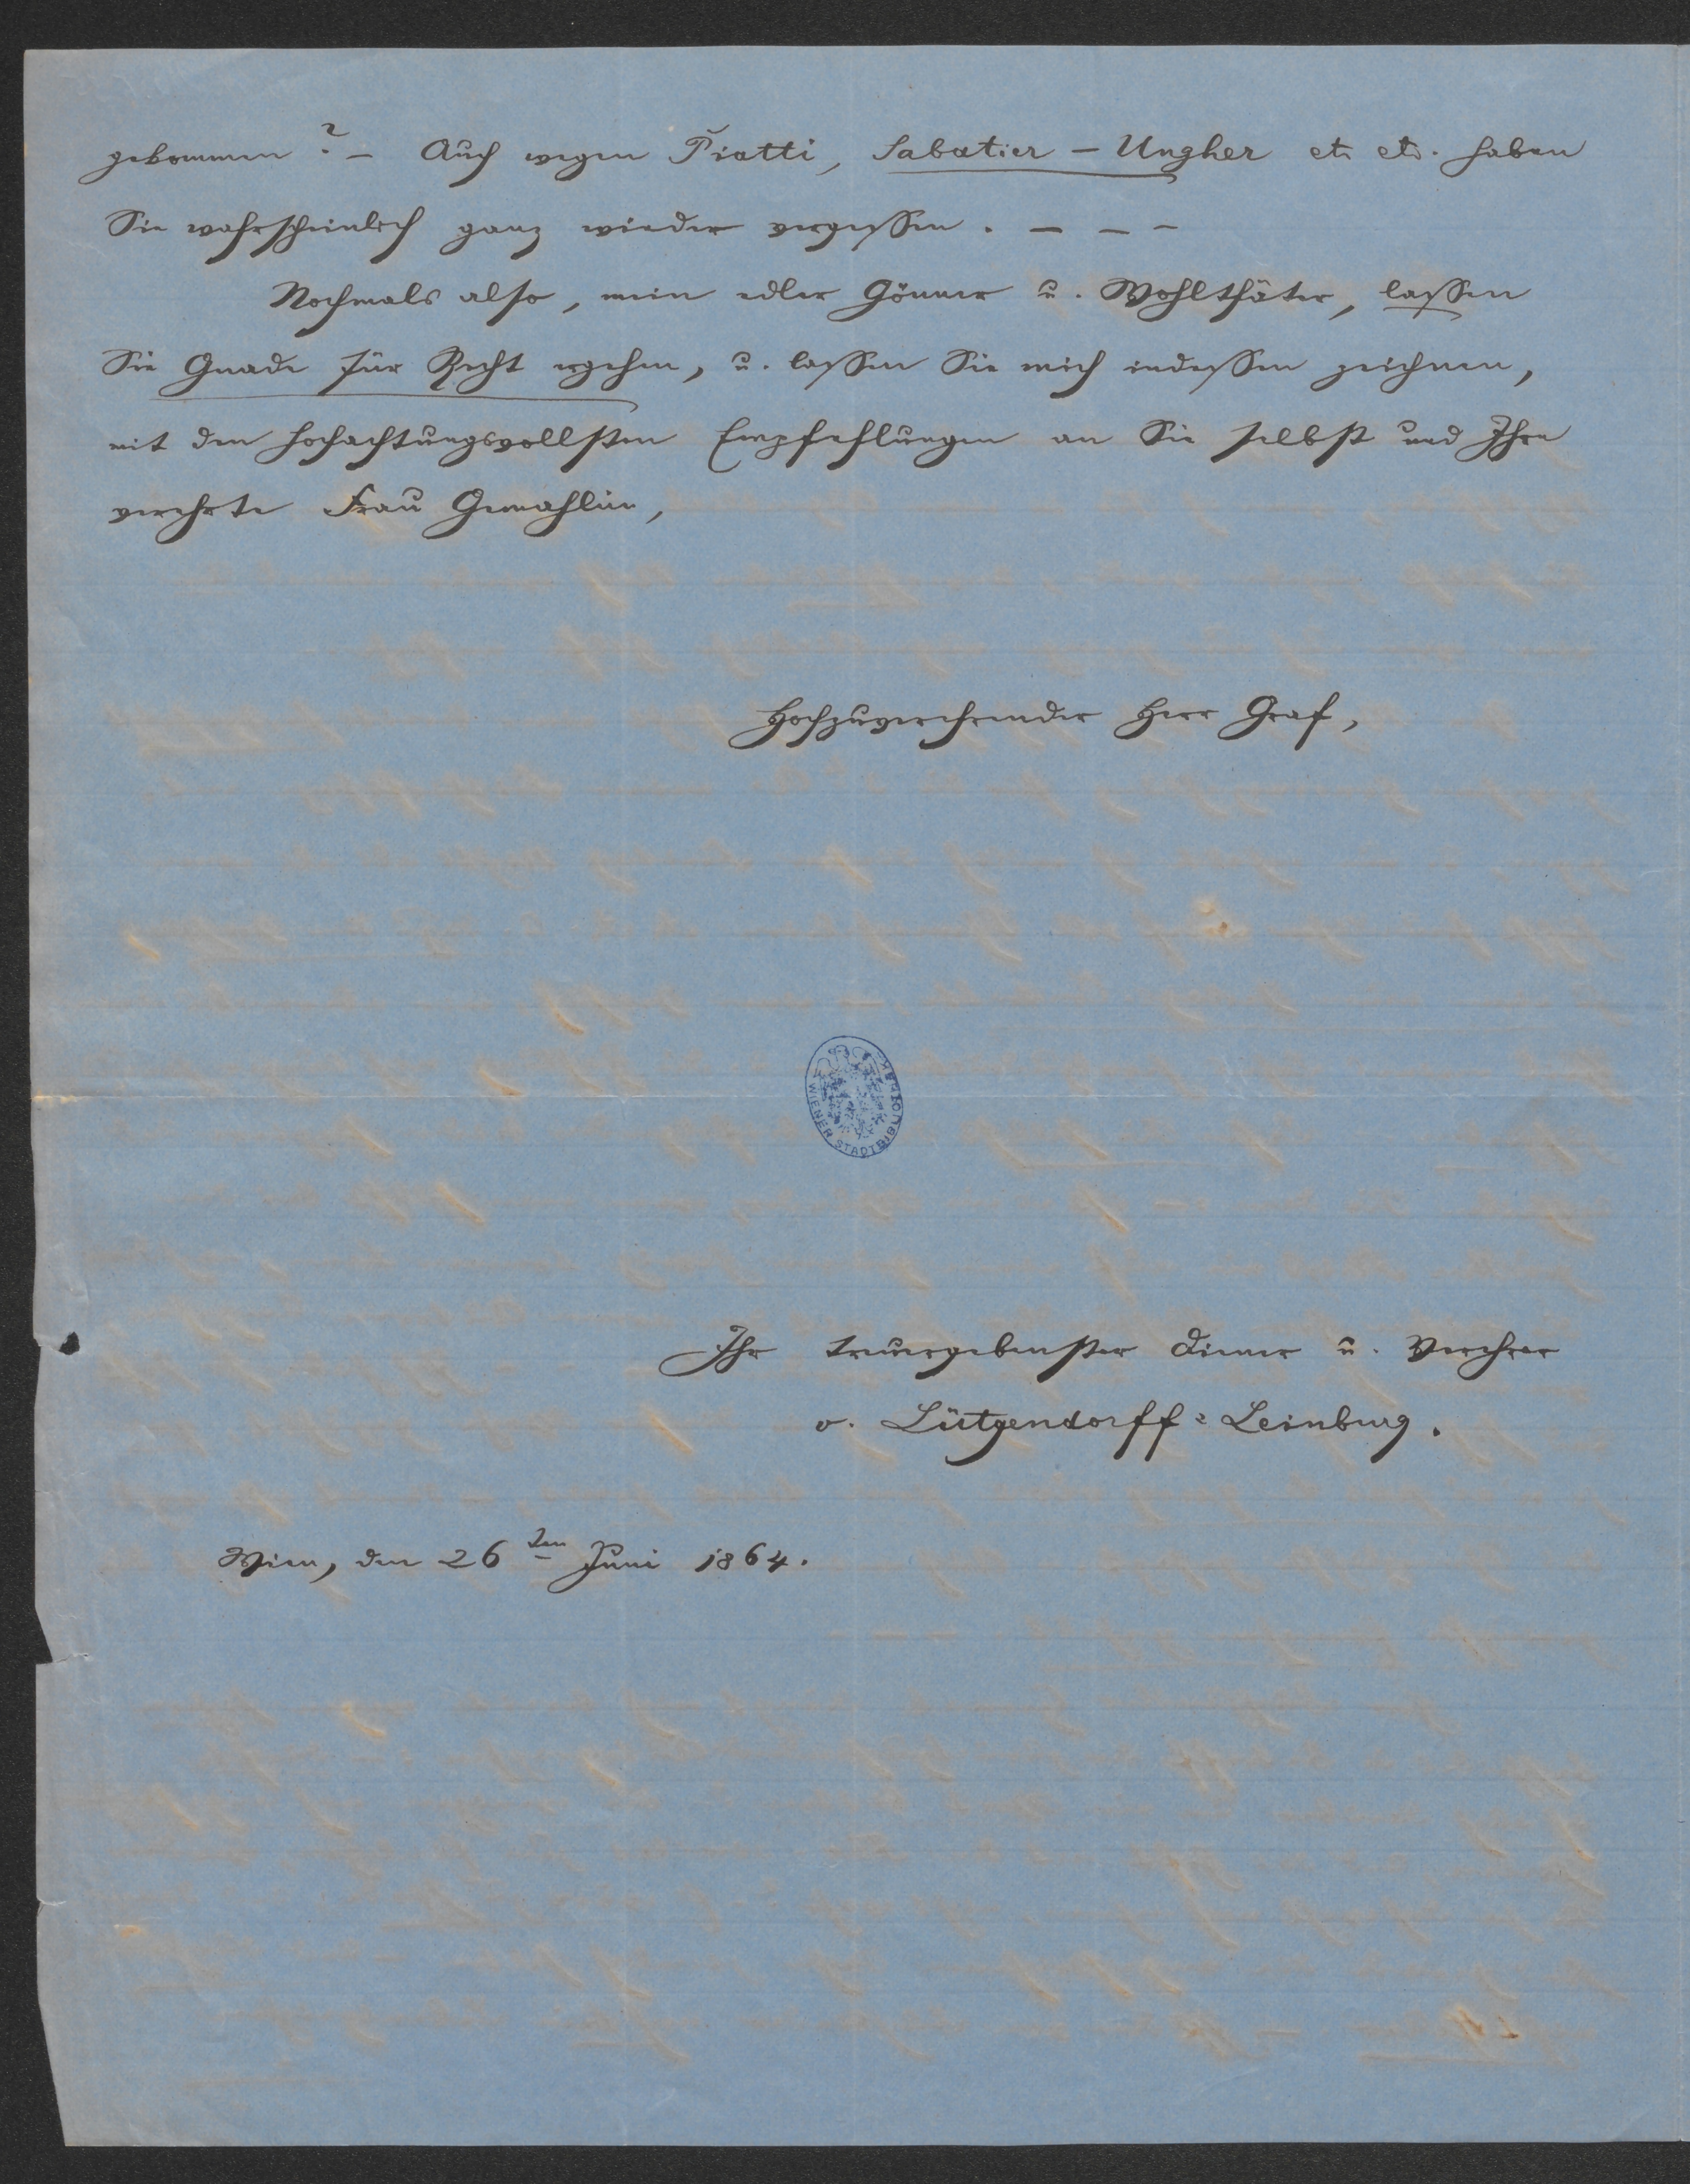 gekommen? – Auch wegen Piatti, Sabatier – Ungher etc etc. haben
Sie wahrscheinlich ganz wieder vergessen. – – –
Nochmals also, mein edler Gönner u. Wohlthäter, lassen
Sie Gnade für Recht ergehen, u. lassen Sie mich indessen zeichnen,
mit den hochachtungsvollsten Empfehlungen an Sie selbst und Ihre
verehrte Frau Gemahlin,
Hochzuverehrender Herr Graf,
WIENER STADTBIBLIOTHEK
Ihr treuergebenster Diener u. Verehrer
v. Lütgendorff-Leinburg.
Wien, den 26ten Juni 1864.